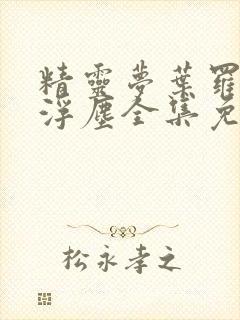 精靈夢葉羅
浮塵全集免
松永孝之